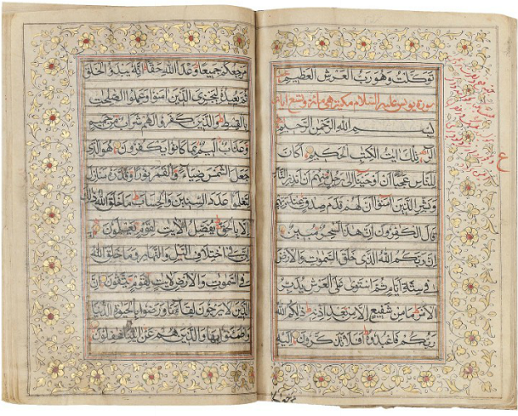 توكلت وهو رب العرش العظيم
سورة يونس عليه السلام مكية وهي مائة وتسع آيات
بسم الله الرحمن الرحيم
الر تلك ايت الكتب الحكيم اكان
للناس عجبا ان اوحينا الى رجل منهم ان انذر الناس
وبشر الذين امنوا ان لهم قدم صدق عند ربهم
قال الكفرون ان هذا لسحر مبين ان
ربكم الله الذي خلق السموت والارض
في ستة ايام ثم استوى على العرش يدبر
الامر ما من شفيع الا من بعد اذنه ذلكم الله
ربكم فاعبدوه افلا تذكرون اليه
مرجعكم جميعا وعد الله حقا انه يبدؤا الخلق
ثم يعيده ليجزي الذين امنوا وعملوا الصلحت
بالقسط والذين كفروا لهم شراب من حميم
وعذاب اليم بما كانوا يكفرون هو الذي
جعل الشمس ضياء والقمر نورا وقدره منازل
لتعلموا عدد السنين والحساب ما خلق الله ذلك
الا بالحق يفصل الايت لقوم يعلمون
ان في اختلاف اليل والنهار وما خلق الله
في السموت والارض لايت لقوم يتقون ان
الذين لا يرجون لقاءنا ورضوا بالحيوة الدنيا
واطمانوا بها والذين هم عن ايتنا غفلون